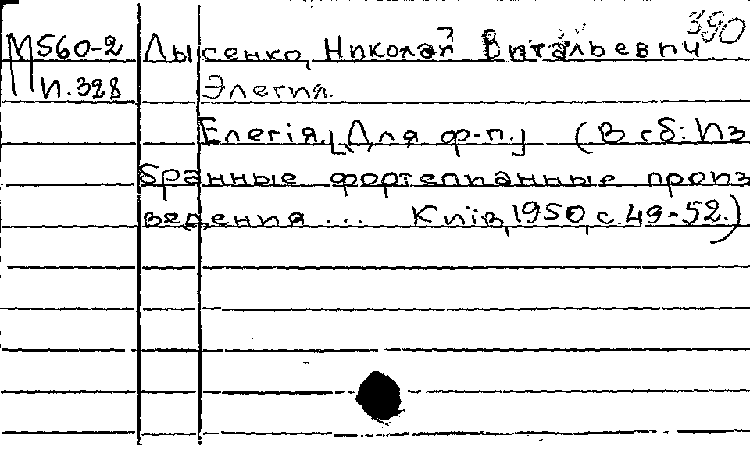 390
М560-2 Лысенко, Николай Витальевич
П.328 Элегия.
Елегія. [Для ф-п.] (В сб: Из
бранные фортепианные произ
ведения ... Київ, 1950, с. 49-52.)